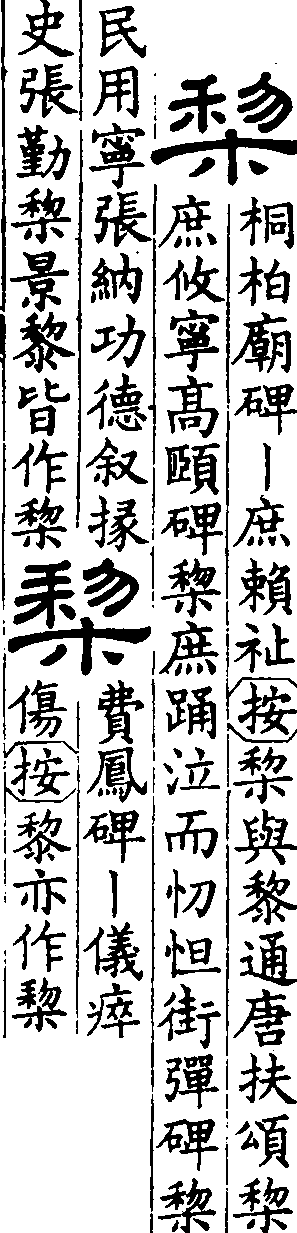 棃
桐柏廟碑丨庶賴祉按棃與黎通唐扶頌棃
庶攸寧髙頤碑棃庶踊泣而忉怛街彈碑棃
民用寧張納功德叙掾
史張勤棃景黎皆作棃
費鳳碑丨儀瘁
傷按黎亦作